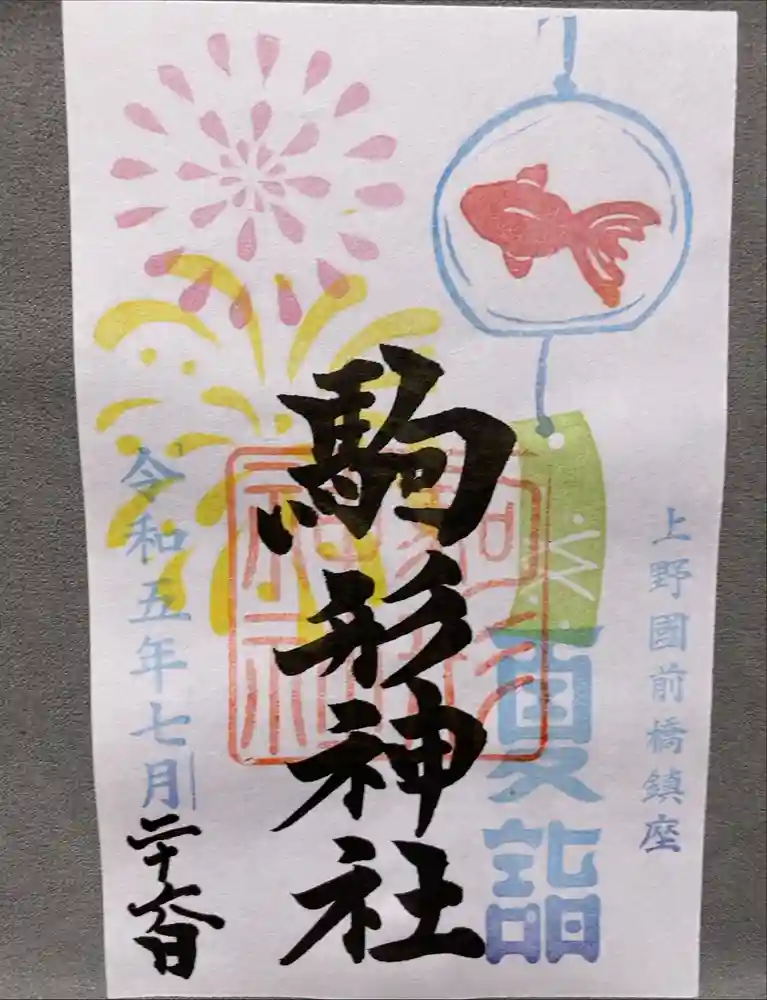 上野國前橋鎮座
夏詣
駒形神社
令和五年七月
二十六日